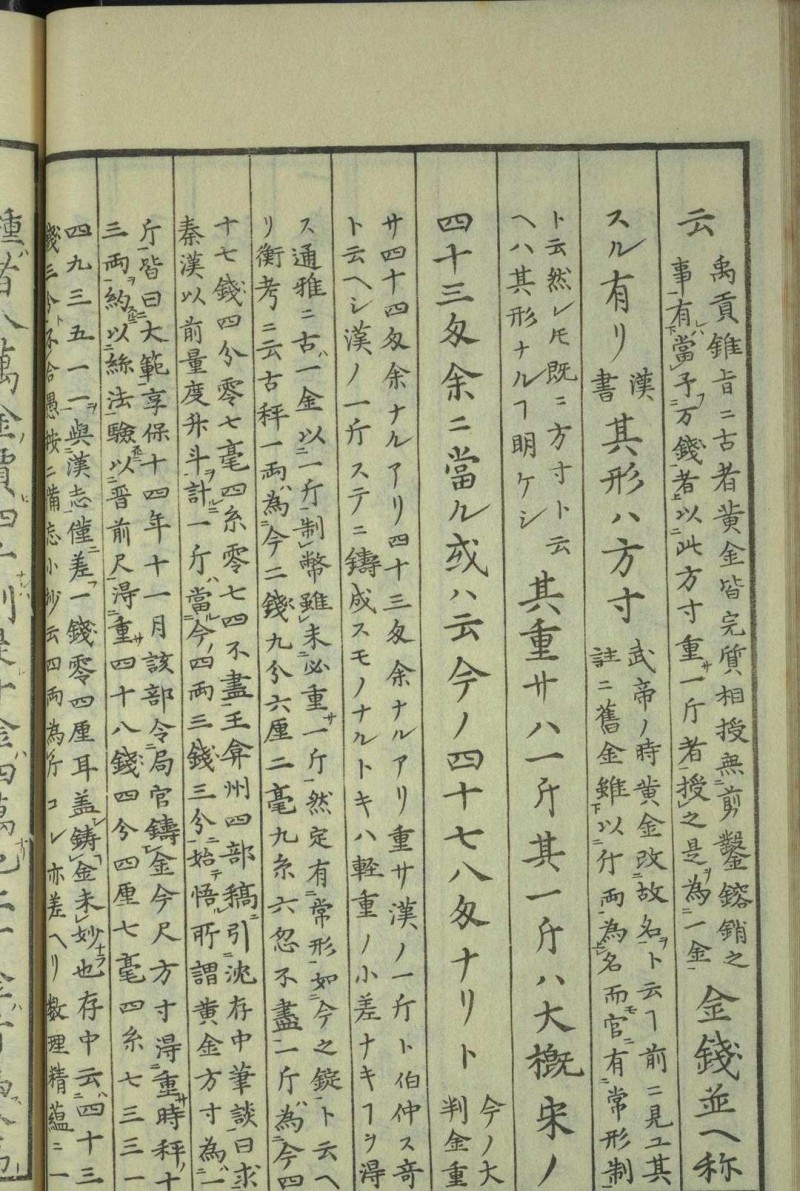 云
禹貢錐旨ニ古者黄金皆完質相授無剪鑿鎔銷之
事有當予万錢者以此方寸重サ一斤者授之是為一金
金錢並ヘ称
スル有リ
漢
書
其形ハ方寸
武帝ノ時黄金改故名ヲト云ヿ前ニ見エ其
註ニ舊金雖以斤両為名而官有常形制
ト云然レ𪜈既ニ方寸ト云
ヘハ其形ナルヿ明ケシ
其重サハ一斤其一斤ハ大概宋ノ
四十三匁余ニ當ル或ハ云今ノ四十七八匁ナリト
今ノ大
判金重
サ四十四匁余ナルアリ四十三匁余ナルアリ重サ漢ノ一斤ト伯仲ス奇
ト云ヘシ漢ノ一斤ステニ鑄成スモノナルトキハ軽重ノ小差ナキヿヲ得
ス通雅ニ古ハ一金以一斤制幣雖未必重サ一斤然定有常形如今之錠ト云ヘ
リ衡考ニ云古秤一両ハ為今二錢九分六厘二毫九糸六忽不盡一斤ハ為今四
十七錢四分零七毫四糸零七四不盡王弇州四部稿ニ引沈存中筆談曰求
秦漢以前量度升斗計一斤ハ當今ノ四両三錢三分始悟所謂黄金方寸為ハ一
斤皆曰大範享保十四年十一月該部令局官鑄金今尺方寸淂重時秤ノ十
三両約以絲法驗以晋前尺淂重サ四十八錢四分四厘七毫四糸七三三一
四九三五一一與漢志僅差一錢零四厘耳盖鑄金未妙也存中云四十三
錢三分ト不合愚按ニ備忘小抄云四両為斤コレ亦差ヘリ数理精蘊ニ一